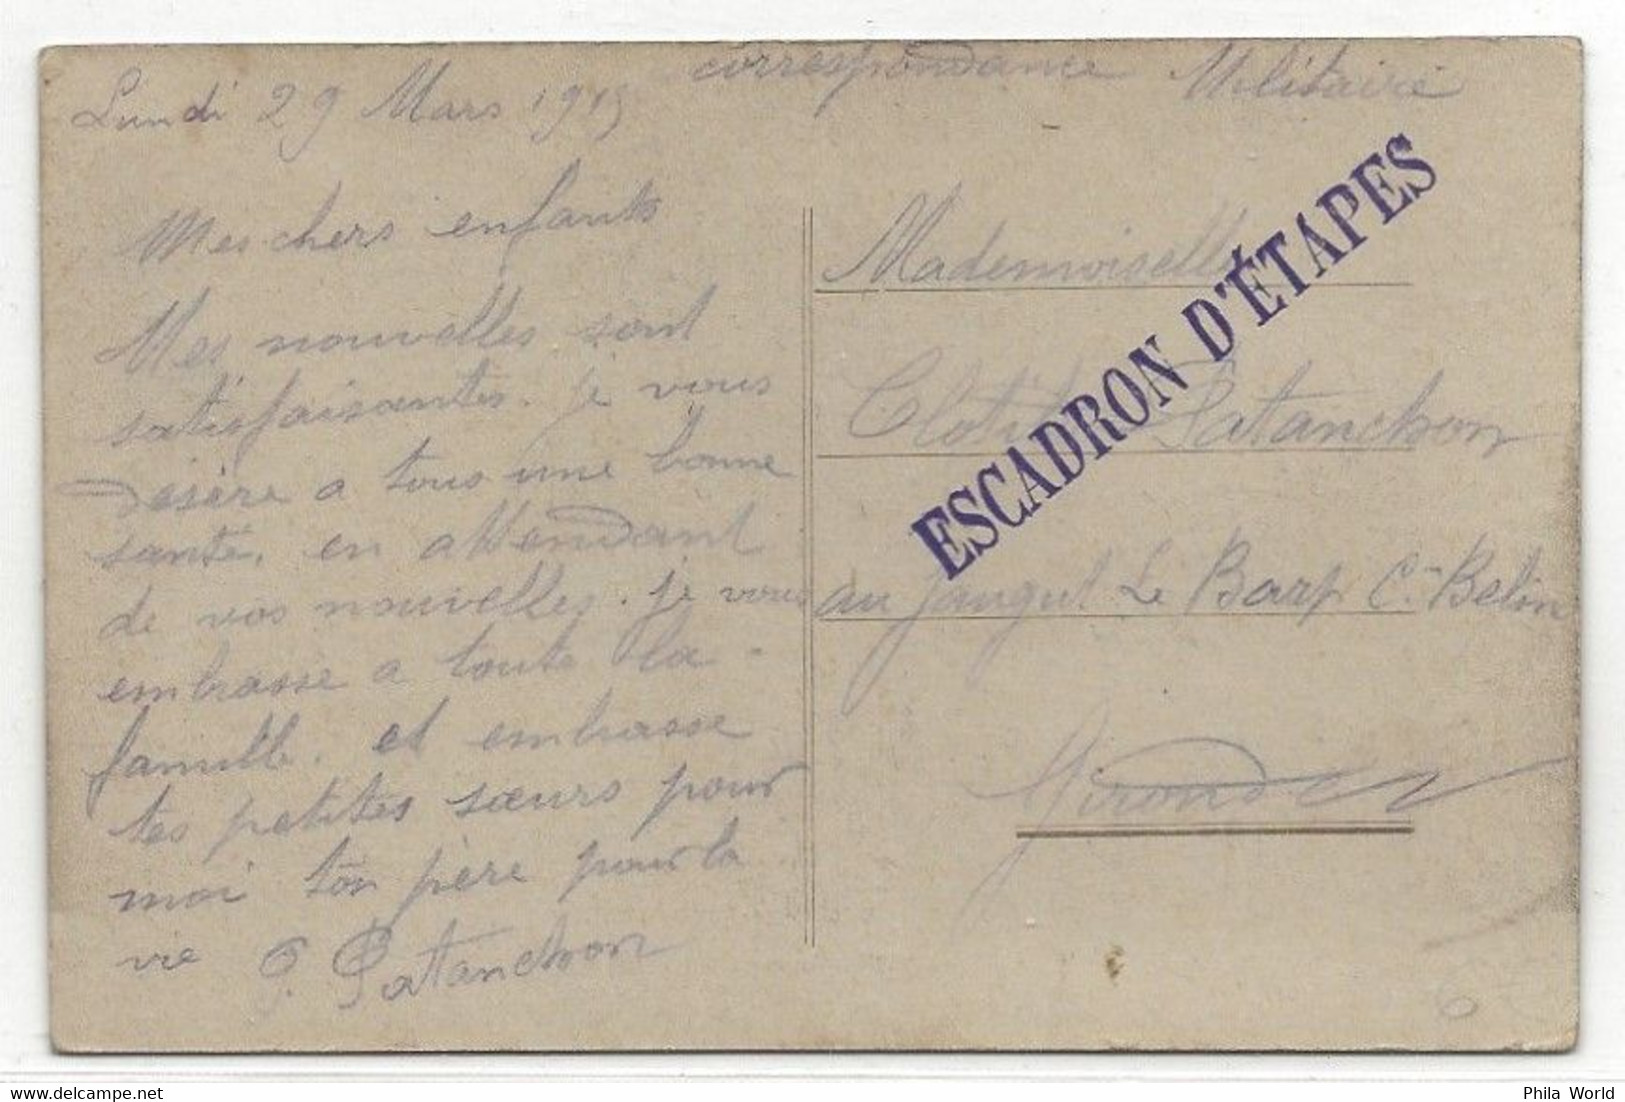 correspondance Militaire
Lundi 29 Mars 1915
Mes chers enfants
Mes nouvelles sont
satisfaisantes. je vous
désère a tous une bonne
santé. en attendant
de vos nouvelles. je vous
embrasse a toute la
famille. et embrasse
tes petites sœurs pour
moi ton père pour la
vie P. Patanchon
ESCADRON D'ÉTAPES
Mademoiselle
Clotilde Patanchon
au Le Barp Cⁿ Belin
Gironde
Phila World